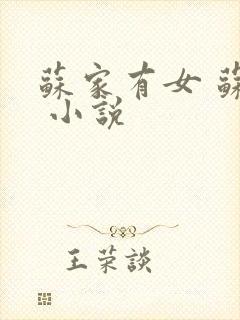 蘇家有女 蘇
小説
王荣談